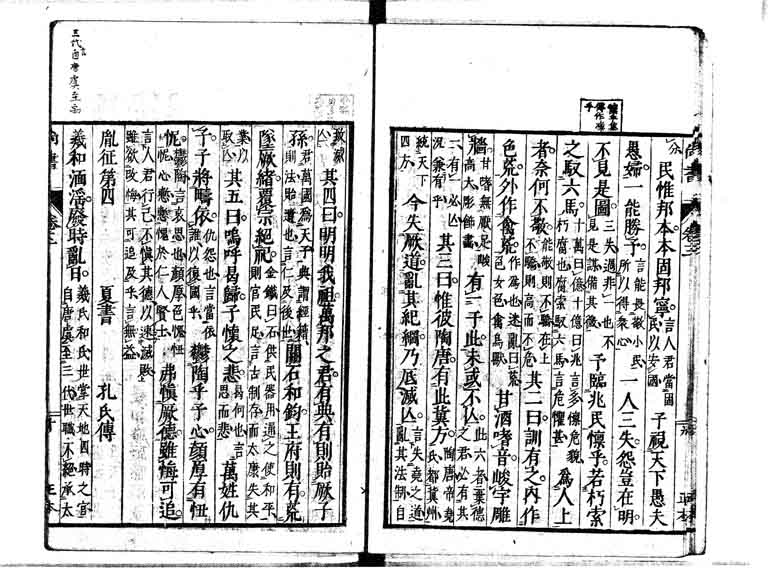 民惟邦本本固邦寧言人君當固民以安國予視天下愚夫
愚婦一能勝予言能畏敬小民所以得衆心一人三失怨豈在明
不見是圖三失過非一也不見是謀備其微予臨兆民懍乎若朽索
之馭六馬十萬曰億十億曰兆言多懍危貌朽腐也腐索馭六馬言危懼甚爲人上
者奈何不敬能敬則不驕在上不驕則高而不危其二曰訓有之內作
色荒外作禽荒作爲也迷亂曰荒色女色禽鳥獸甘酒嗜音峻宇雕
牆甘嗜無厭足峻高大彫飾畫有一于此未或不亾此六者棄德之君必有其
一有一必亾況兼有乎其三曰惟彼陶唐有此冀方陶唐帝堯氏都冀州
統天下四方今失厥道亂其紀綱乃厎滅亾言失堯之道亂其法制自
致滅亾其四曰明明我祖萬邦之君有典有則貽厥子
孫君萬國爲天子典謂經籍則法貽遺也言仁及後世關石和鈞王府則有荒
墜厥緒覆宗絕祀金鐵曰石供民器用通之使和平則官民足言古制存而太康失其
業以取亾其五曰嗚呼曷歸予懷之悲曷何也言思而悲萬姓仇
予予將疇依仇怨也言當依誰以復國乎鬱陶乎予心顏厚有忸
怩鬱陶言哀思也顏厚色愧忸怩心慙慙愧於仁人賢士弗愼厥德雖悔可追
言人君行己不愼其德以速滅敗雖欲改悔其可追及乎言無益
胤征第四 夏書 孔氏傳
羲和湎淫廢時亂日羲氏和氏世掌天地四時之官自唐虞至三代世職不絕承太
尚書
三代自唐虞至